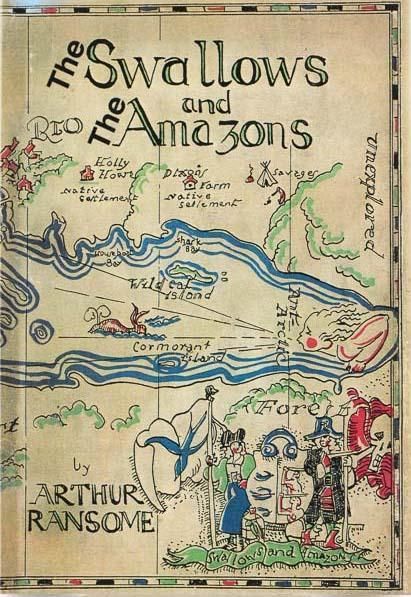 The Swallows
and
The Amazons
RIO
Holly
Howe
Native
settlement
Dixons
Farm
Native
settlement
Savages
Unexplored
Houseboat
Bay
Shark
Bay
Wildcat
Island
Antarctic
Cormorant
Island
Forest
by
ARTHUR
RANSOME
Swallows and Amazons